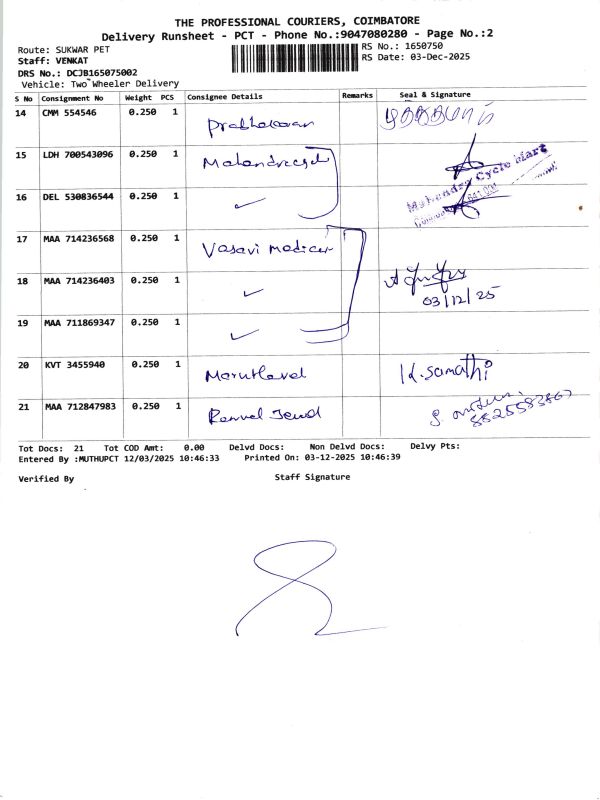 THE PROFESSIONAL COURIERS, COIMBATORE
Delivery Runsheet - PCT - Phone No.:9047080280 - Page No.:2
Route: SUKWAR PET
RS No.: 1650750
Staff: VENKAT
RS Date: 03-Dec-2025
DRS No.: DCJB165075002
Vehicle: Two Wheeler Delivery
S No Consignment No Weight PCS Consignee Details Remarks Seal & Signature
14 CMM 554546 0.250 1 Prabhakaran
15 LDH 700543096 0.250 1
Mahendra Cycle Mart
16 DEL 530836544 0.250 1 ✓
17 MAA 714236568 0.250 1 Vasavi Medicar
18 MAA 714236403 0.250 1 ✓
03/12/25
19 MAA 711869347 0.250 1 ✓
20 KVT 3455940 0.250 1 K.Sumathi
21 MAA 712847983 0.250 1
8825583867
Tot Docs: 21 Tot COD Amt: 0.00 Delvd Docs: Non Delvd Docs: Delvy Pts:
Entered By :MUTHUPCT 12/03/2025 10:46:33 Printed On: 03-12-2025 10:46:39
Verified By Staff Signature